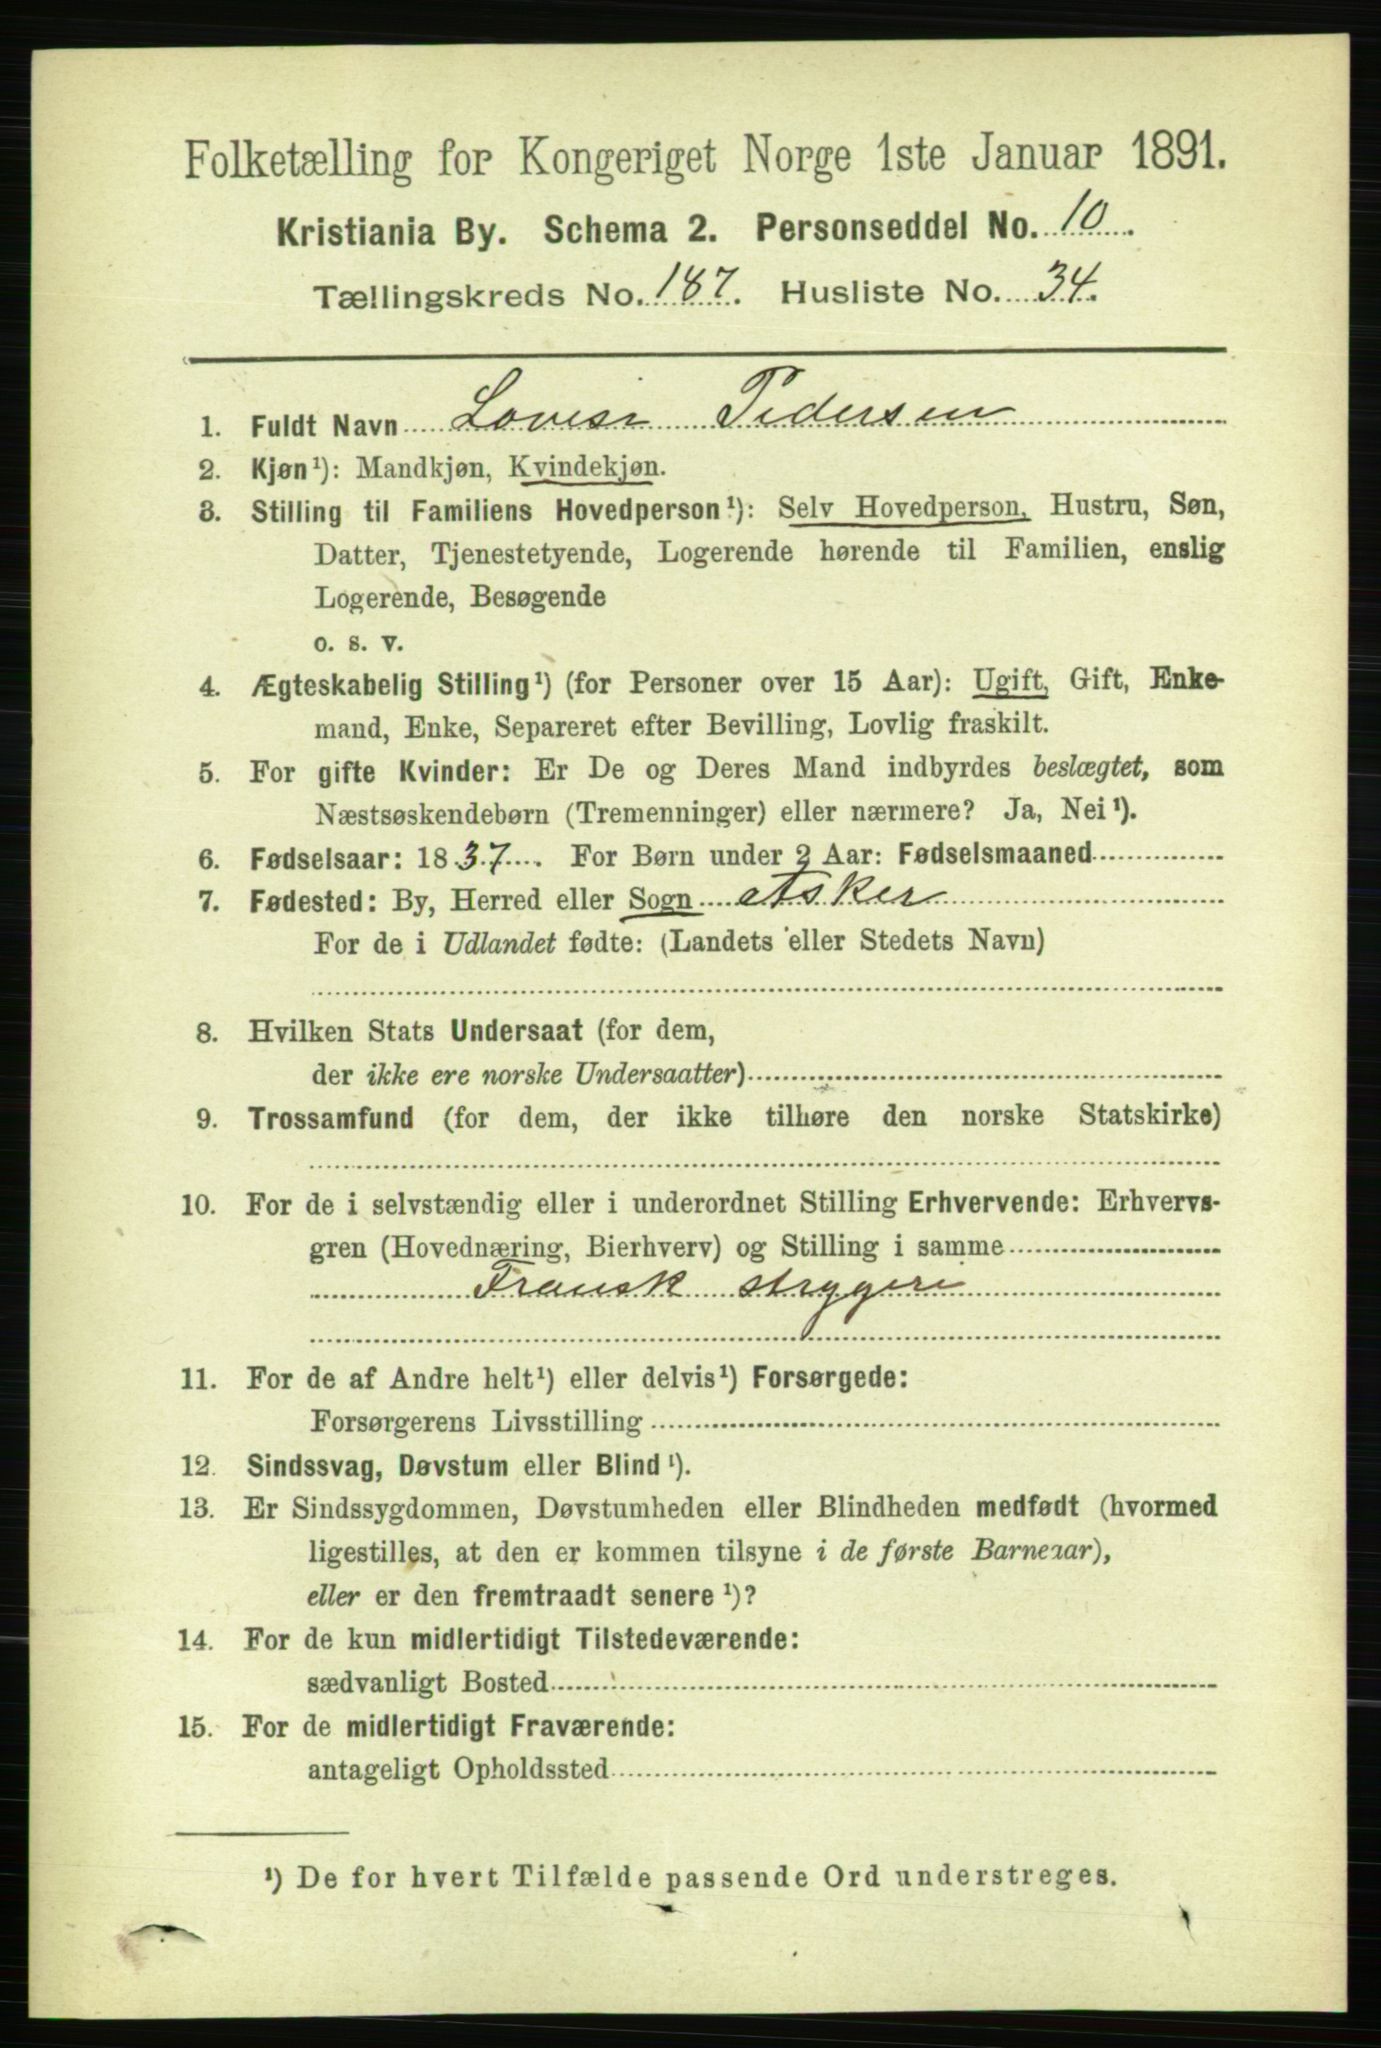 Folketælling for Kongeriget Norge 1ste Januar 1891.
Kristiania By. Schema 2. Personseddel No. 10.
Tællingskreds No. 187. Husliste No. 34.
1. Fuldt Navn Lovise Pedersen
2. Kjøn¹): Mandkjøn, Kvindekjøn.
3. Stilling til Familiens Hovedperson¹): Selv Hovedperson, Hustru, Søn,
Datter, Tjenestetyende, Logerende hørende til Familien, enslig
Logerende, Besøgende
o. s. v.
4. Ægteskabelig Stilling¹) (for Personer over 15 Aar): Ugift, Gift, Enke-
mand, Enke, Separeret efter Bevilling, Lovlig fraskilt.
5. For gifte Kvinder: Er De og Deres Mand indbyrdes beslægtet, som
Næstsøskendebørn (Tremenninger) eller nærmere? Ja, Nei¹).
6. Fødselsaar: 1837. For Børn under 2 Aar: Fødselsmaaned
7. Fødested: By, Herred eller Sogn Asker
For de i Udlandet fødte: (Landets eller Stedets Navn)
8. Hvilken Stats Undersaat (for dem,
der ikke ere norske Undersaatter)
9. Trossamfund (for dem, der ikke tilhøre den norske Statskirke)
10. For de i selvstændig eller i underordnet Stilling Erhvervende: Erhvervs-
gren (Hovednæring, Bierhverv) og Stilling i samme
Fransk strygeri
11. For de af Andre helt¹) eller delvis¹) Forsørgede:
Forsørgerens Livsstilling
12. Sindssvag, Døvstum eller Blind¹).
13. Er Sindssygdommen, Døvstumheden eller Blindheden medfødt (hvormed
ligestilles, at den er kommen tilsyne i de første Barneaar),
eller er den fremtraadt senere¹)?
14. For de kun midlertidigt Tilstedeværende:
sædvanligt Bosted
15. For de midlertidigt Fraværende:
antageligt Opholdssted
¹) De for hvert Tilfælde passende Ord understreges.